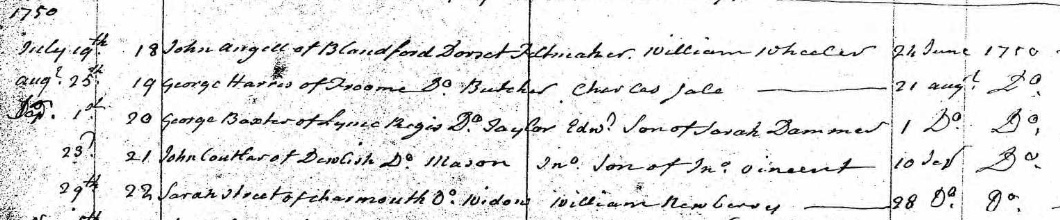 1750
July 19th 18 John Angell of Blandford Dorset Feltmaker. William Wheeler 24 June 1750
augt. 25th 19 George Harris of Froome Do. Butcher Charles Sale 21 augt Do.
Sep. 1st 20 George Baxter of Lyme Regis Do. Taylor Edwd. Son of Sarah Dammer 1 Do. Do.
23d 21 John Coutler of Dewlish Do. Mason Jno. Son of Jno. Vincent 10 Sep Do.
29th 22 Sarah Street of Charmouth Do. Widow William Newberry 28 Do. Do.